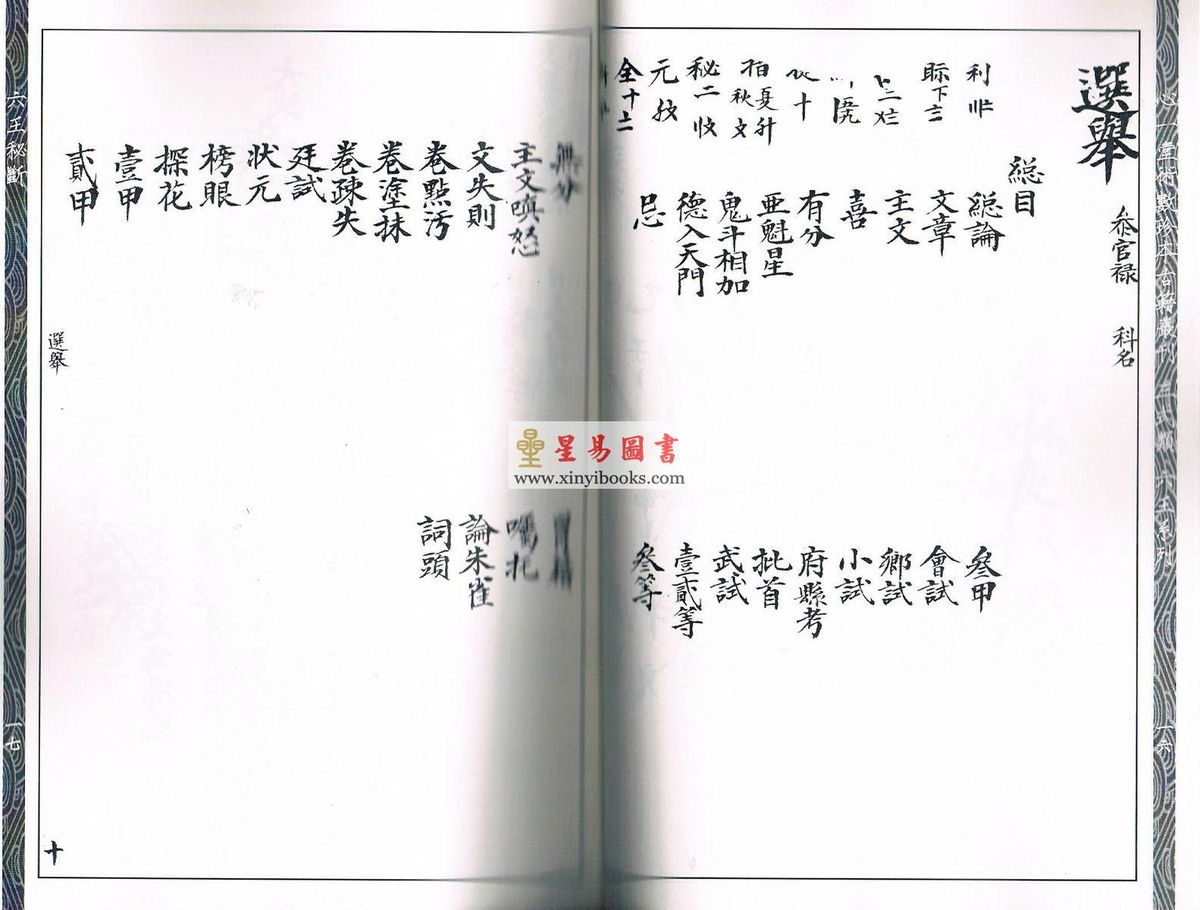 心一堂術數珍本古籍叢刊 三式類 六壬系列
一六
選舉
叅官禄 科名
総目
総論
文章
主文
喜
有分
亜魁星
鬼斗相加
德入天門
忌
利
元
秘二收
秋文
全十二
叄甲
會試
鄉試
小試
府縣考
批首
武試
壹貳等
叄等
無分
主文嗔怒
文失則
卷點汚
卷塗抹
卷疎失
廷試
状元
榜眼
探花
壹甲
貳甲
論朱雀
詞頭
選舉
十
六壬秘斷
一七
星易圖書
www.xinyibooks.com